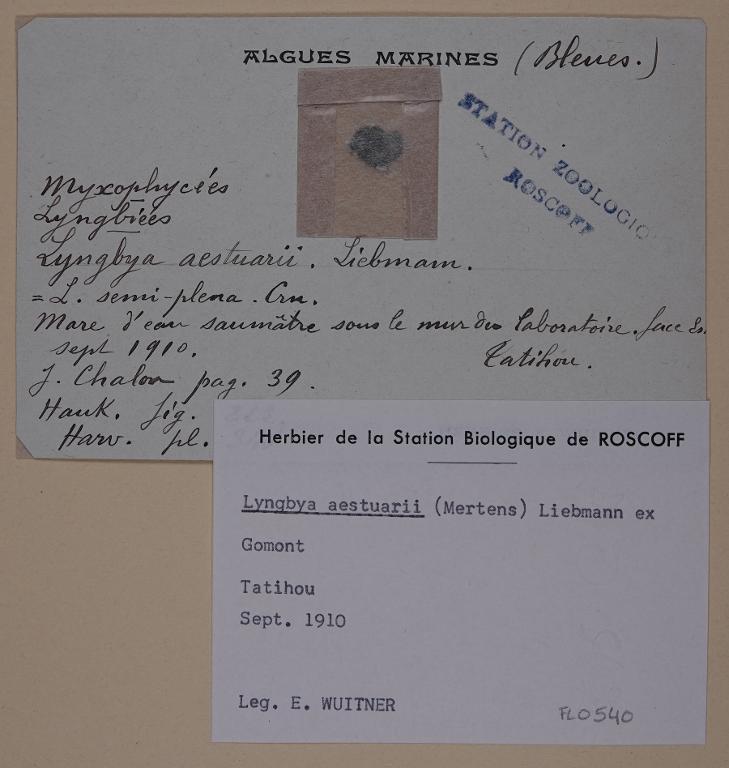 ALGUES MARINES (Bleues.)
STATION ZOOLOGIQ
ROSCOFF
Myxophycées
Lyngbiées
Lyngbya aestuarii. Liebmann.
= L. semi-plena. Cru.
Mare d'eau saumâtre sous le mur du laboratoire. face Es.
sept 1910. Tatihou.
J. Chalon pag. 39.
Hauk. fig.
Harv. pl.
Herbier de la Station Biologique de ROSCOFF
Lyngbya aestuarii (Mertens) Liebmann ex
Gomont
Tatihou
Sept. 1910
Leg. E. WUITNER
FLO540